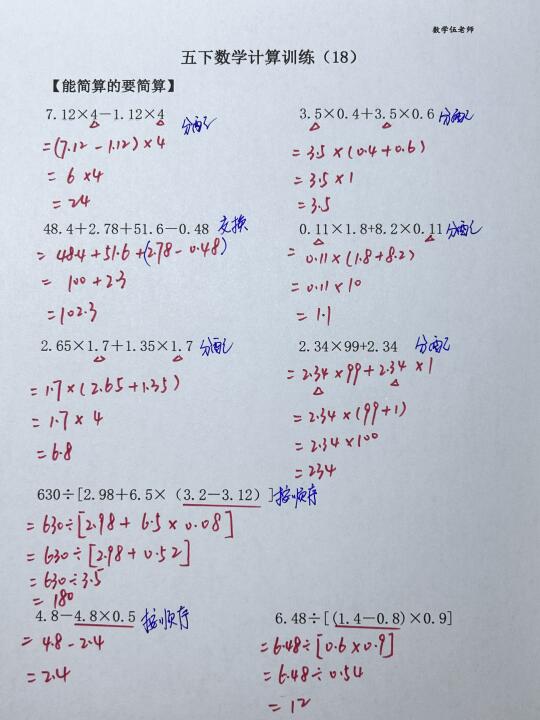 数学伍老师
五下数学计算训练（18）
【能简算的要简算】
7.12×4－1.12×4 分配
=(7.12-1.12)×4
= 6×4
= 24
3.5×0.4＋3.5×0.6 分配
= 3.5×(0.4+0.6)
= 3.5×1
= 3.5
48.4＋2.78＋51.6－0.48 交换
= 48.4+51.6+(2.78-0.48)
= 100+2.3
= 102.3
0.11×1.8+8.2×0.11 分配
= 0.11×(1.8+8.2)
= 0.11×10
= 1.1
2.65×1.7＋1.35×1.7 分配
=1.7×(2.65+1.35)
=1.7×4
=6.8
2.34×99+2.34 分配
= 2.34×99+2.34×1
= 2.34×(99+1)
= 2.34×100
= 234
630÷[2.98＋6.5×（3.2－3.12）] 按顺序
= 630÷[2.98+6.5×0.08]
= 630÷[2.98+0.52]
= 630÷3.5
= 180
4.8－4.8×0.5 按顺序
= 4.8-2.4
= 2.4
6.48÷[(1.4－0.8)×0.9]
= 6.48÷[0.6×0.9]
= 6.48÷0.54
= 12